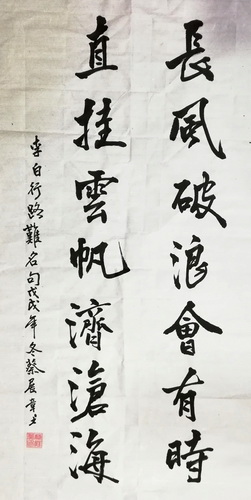 長風破浪會有時
直挂雲帆濟滄海
李白行路難名句戊戌年冬蔡展章书